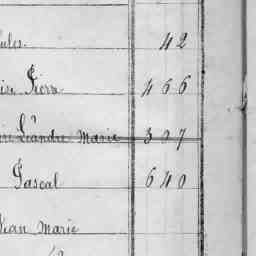 ules. 42
Pierre 466
Léandre Marie 307
Pascal 640
Jean Marie